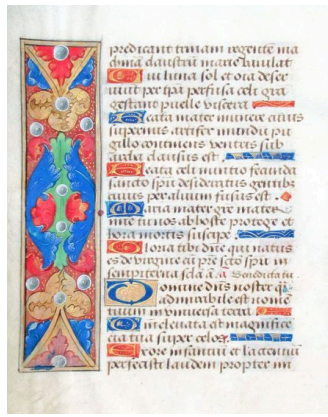 predicant trinam regente ma
china claustru marie baiulat
Cui luna sol et oia deser
uiut per tpa perfusa celi gra
gestant puelle viscera
Beata mater munere cuius
supernus artifex mundu pu
gillo continens ventris sub
archa clausus est.
Beata celi nuntio fecunda
sancto spu desideratus gentib
cuius per aluum fusus est.
Maria mater gre mater
mie tu nos ab hoste protege et
hora mortis suscipe
Gloria tibi dne qui natus
es de virgine cu pre scto spu in
sempiterna scla. a. a Benedicta tu.
Domine dns noster q
admirabile est nome
tuum in vniuersa terra
Qm eleuata est magnifice
tia tua super celos.
Ex ore infantiu et lactentiu
perfecisti laudem propter ini